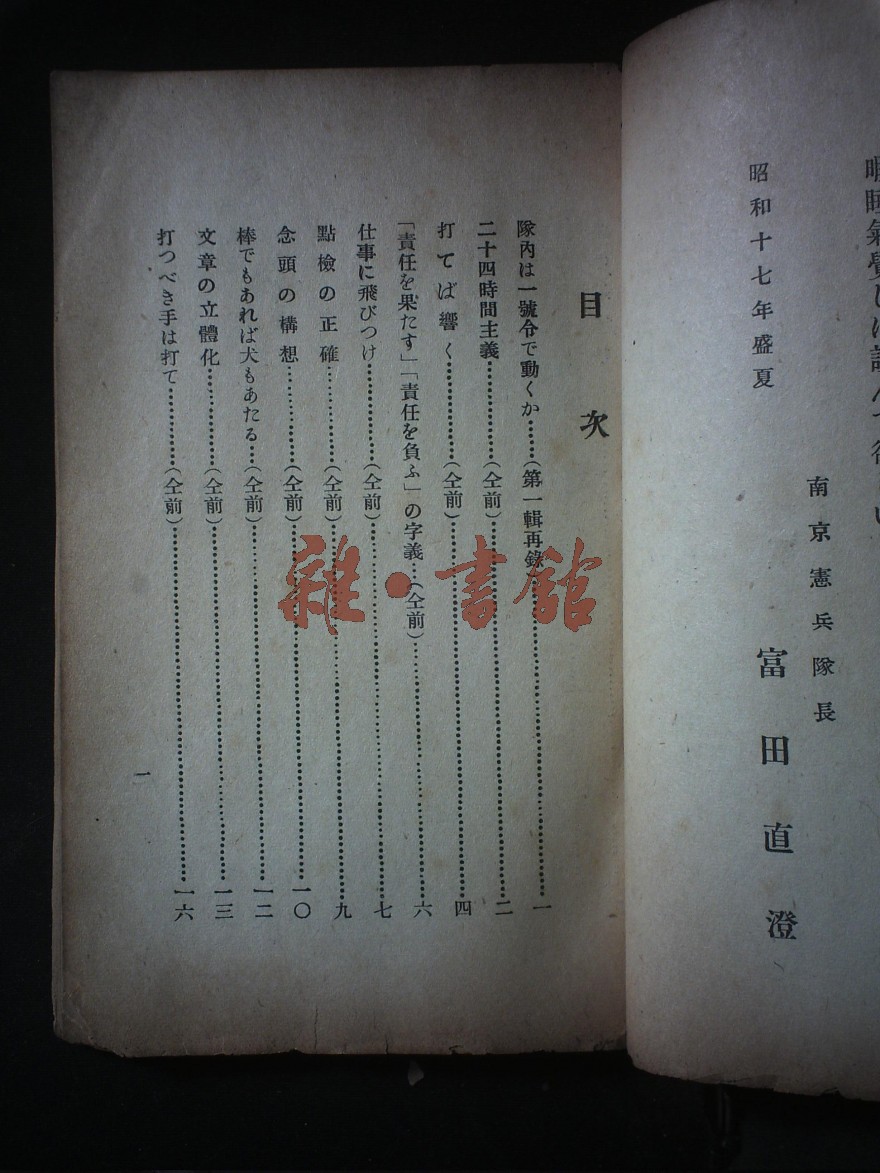 昭和十七年盛夏
南京憲兵隊長
富田直澄
目次
隊內は一號令で動くか……(第一輯再錄)……一
二十四時間主義……(仝前)……二
打てば響く……(仝前)……四
「責任を果たす」「責任を負ふ」の字義…(仝前)……六
仕事に飛びつけ……(仝前)……七
點檢の正確……(仝前)……九
念頭の構想……(仝前)……一〇
棒でもあれば犬もあたる…(仝前)……一二
文章の立體化……(仝前)……一三
打つべき手は打て……(仝前)……一六
一
雜·書館